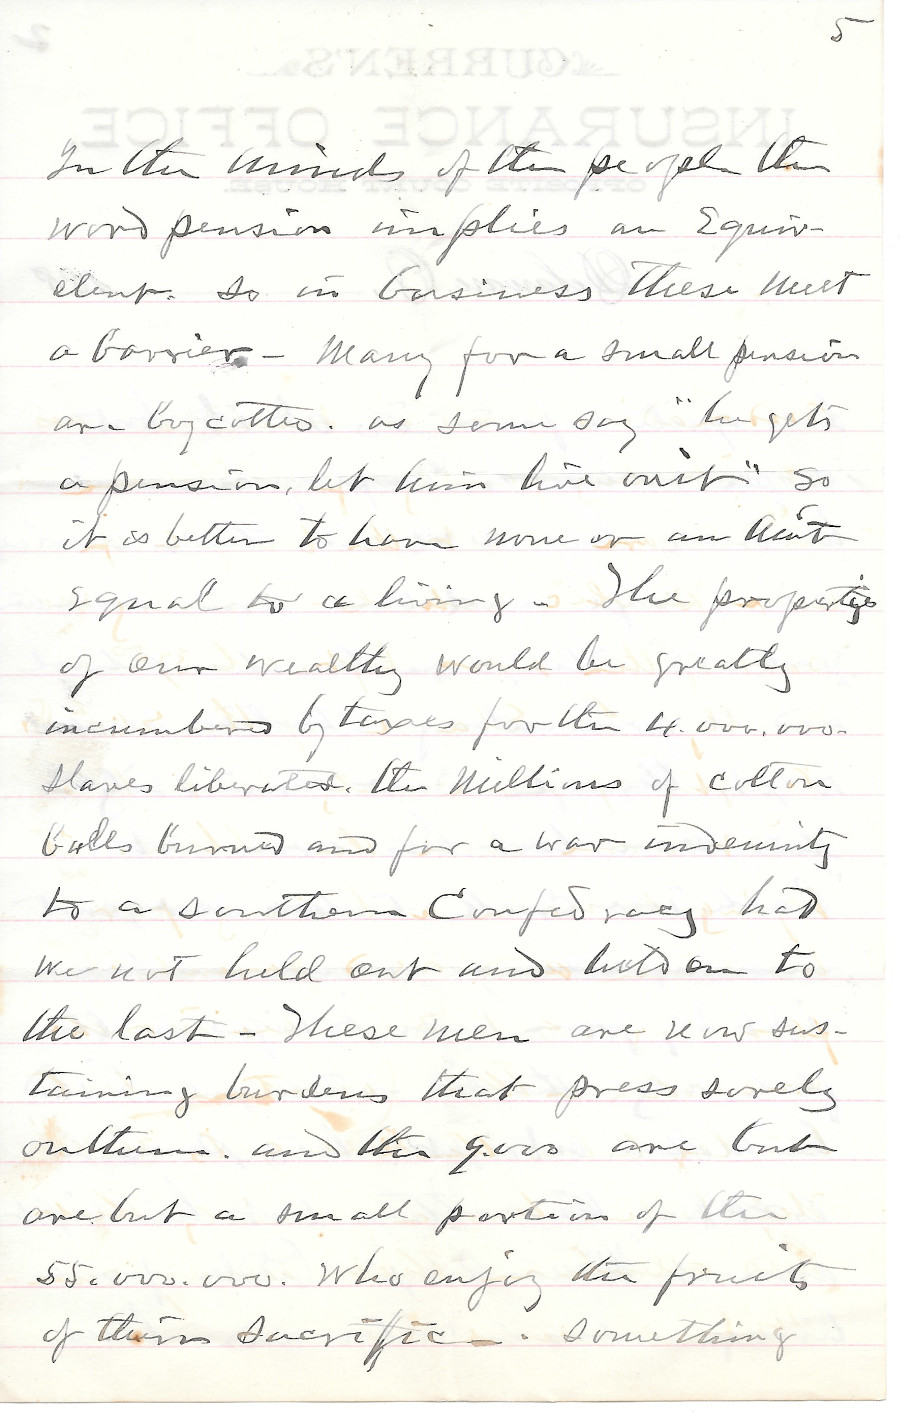 5
In the minds of the people the
word pension implies an Equiv-
elent. So in business these meet
a barrier - Many for a small pension
are boycotted. as some say "he gets
a pension, let him live on it" So
it is better to have none or an Am't
Equal to a living - The properties
of our wealthy would be greatly
incumbered by taxes for the 4.000.000.
Slaves liberated. the Millions of cotton
balls burned and for a war indemnity
to a southern Confedracy had
we not held out and held on to
the last - These men are now sus-
taining burdens that press sorely
on them. and the 9.000 are but
are but a small portion of the
55.000.000. Who enjoy the fruits
of their Sacrifice - . Something
CURREN'S
INSURANCE OFFICE
OPPOSITE COURT HOUSE.
2